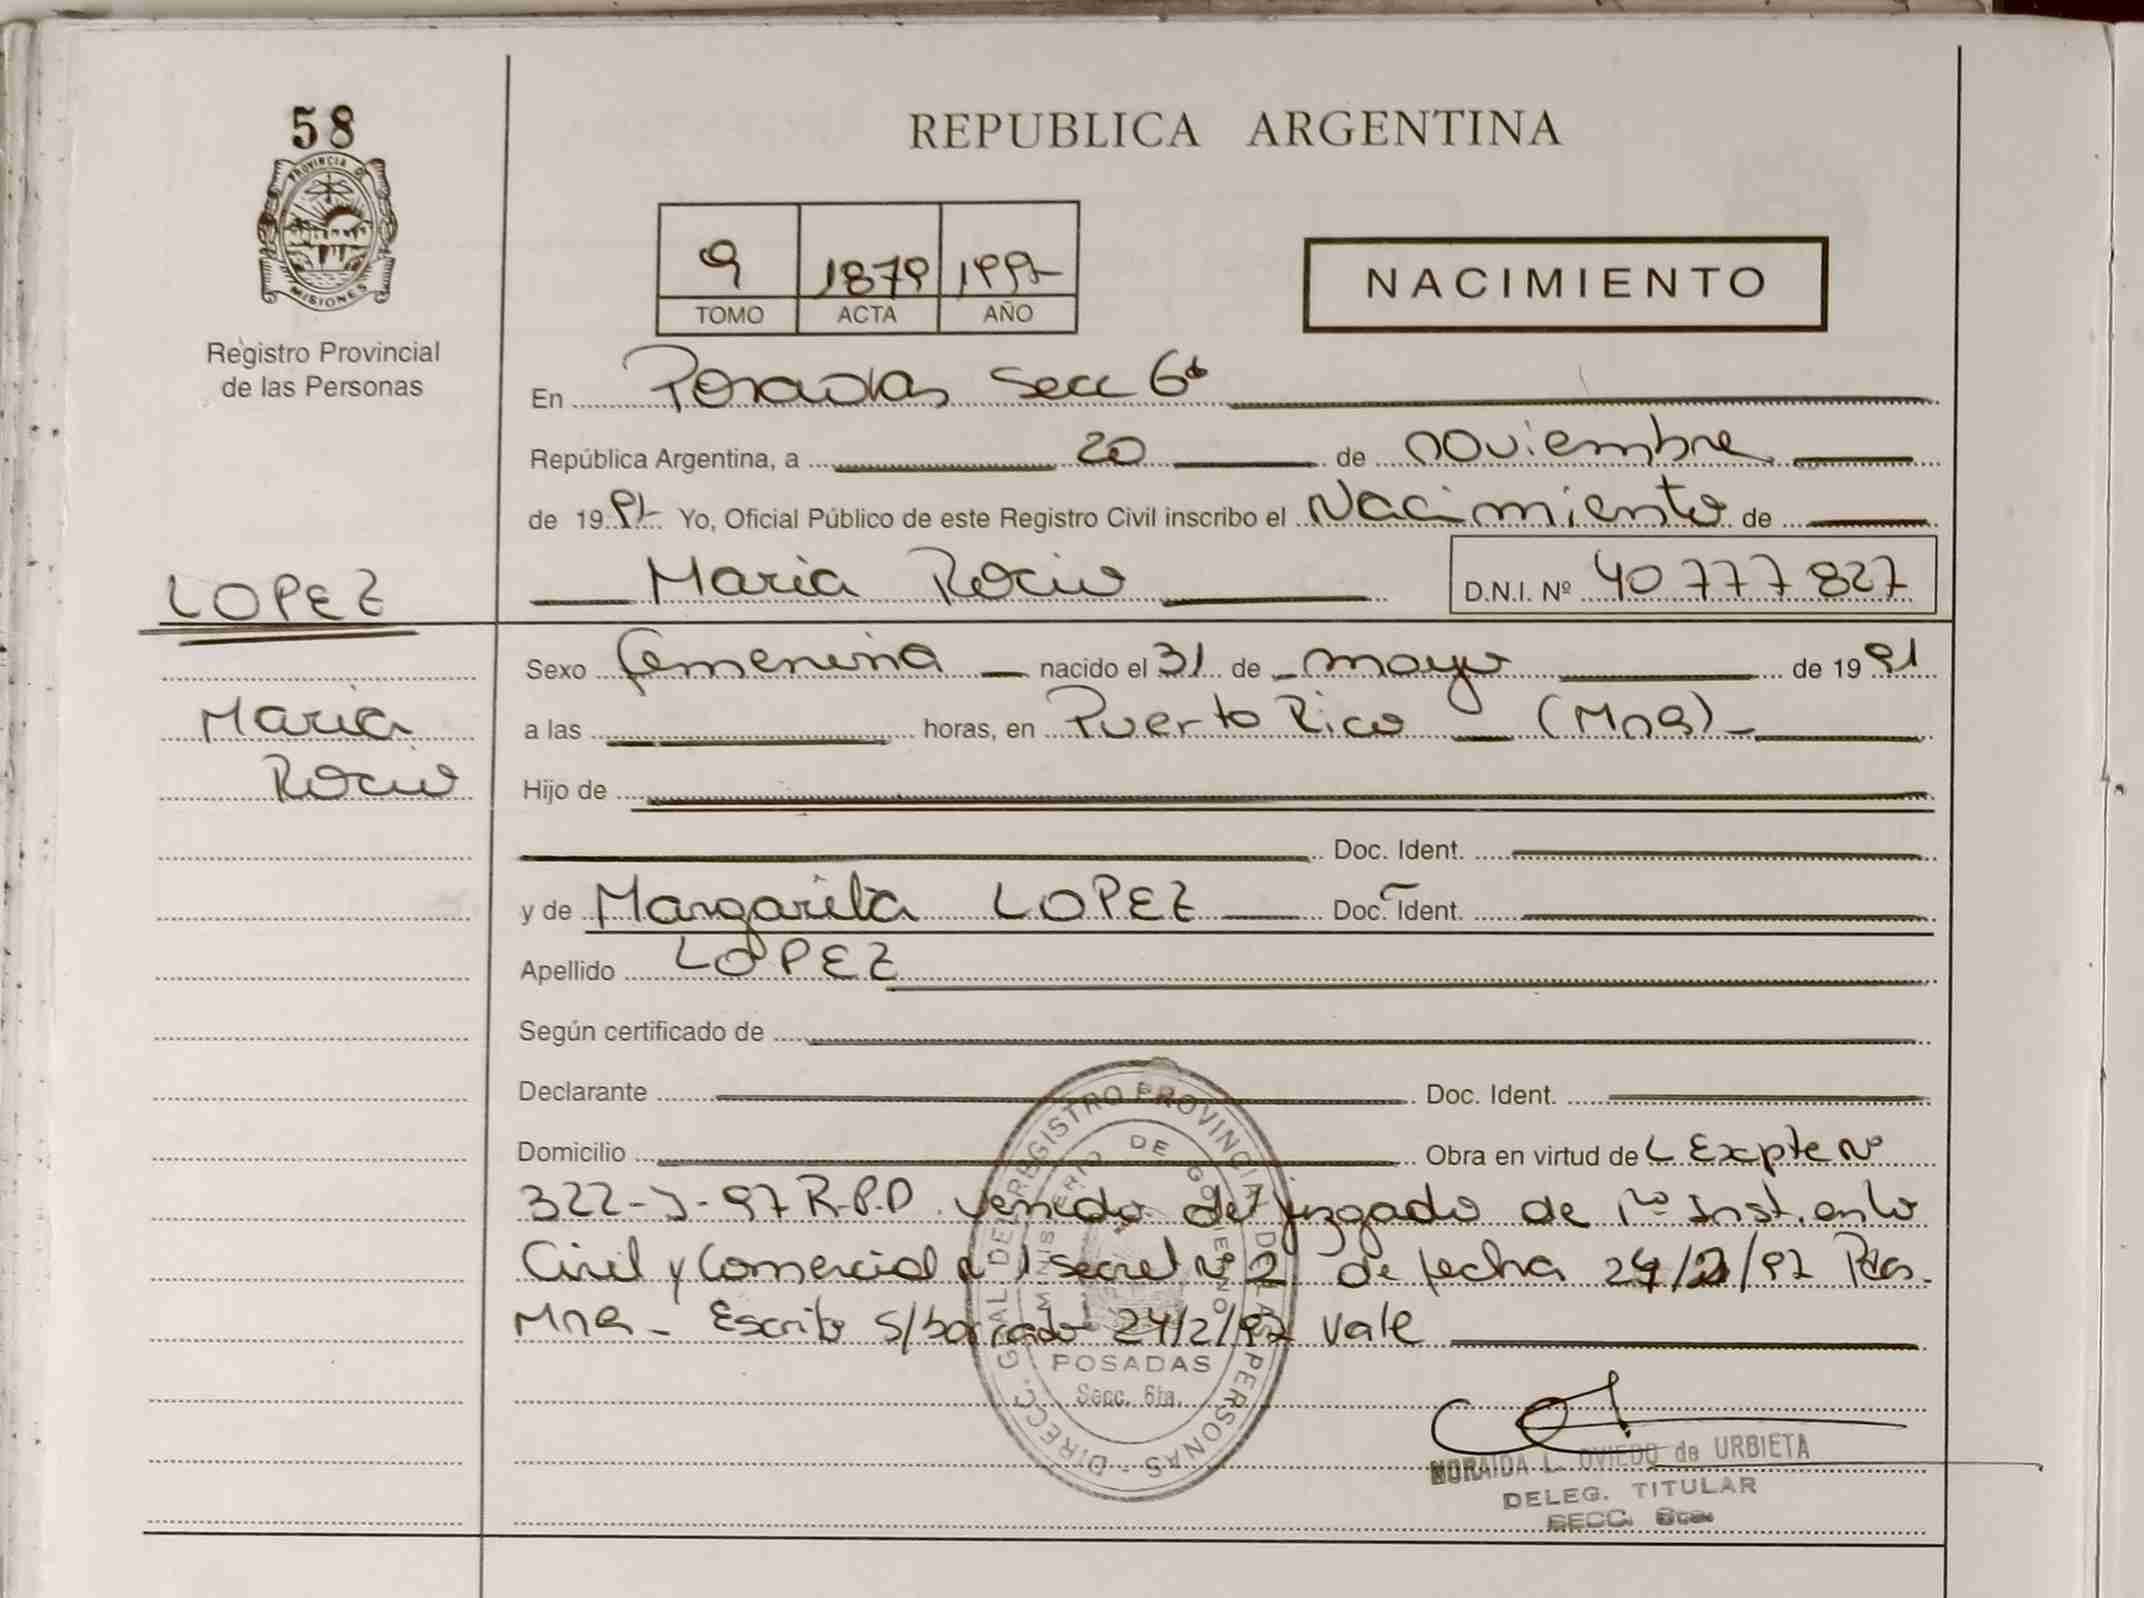 58
PROVINCIA DE
MISIONES
Registro Provincial
de las Personas
REPUBLICA ARGENTINA
9 1879 1997
TOMO ACTA AÑO
NACIMIENTO
En Posadas Secc 6ª
República Argentina, a 20 de noviembre
de 1997 Yo, Oficial Público de este Registro Civil inscribo el Nacimiento de
Maria Rocio D.N.I. Nº 40777827
LOPEZ
Maria
Rocio
Sexo femenina nacido el 31 de mayo de 1991
a las horas, en Puerto Rico (Mnes)
Hijo de
Doc. Ident.
y de Margarita LOPEZ Doc. Ident.
Apellido LOPEZ
Según certificado de
Declarante Doc. Ident.
Domicilio Obra en virtud de L Expte Nº
322-J-97 R.P.P. venido del juzgado de 1º Inst. en lo
Civil y Comercial nº 1 secret nº 2 de fecha 24/2/97 Pdas.
Mnes - Escrito s/borrado 24/2/97 vale
DIRECC. GRAL DEL REGISTRO PROVINCIAL DE LAS PERSONAS
MINISTERIO DE GOBIERNO
POSADAS
Secc. 6ta.
NORAIDA L. OVIEDO de URBIETA
DELEG. TITULAR
SECC. 6ta